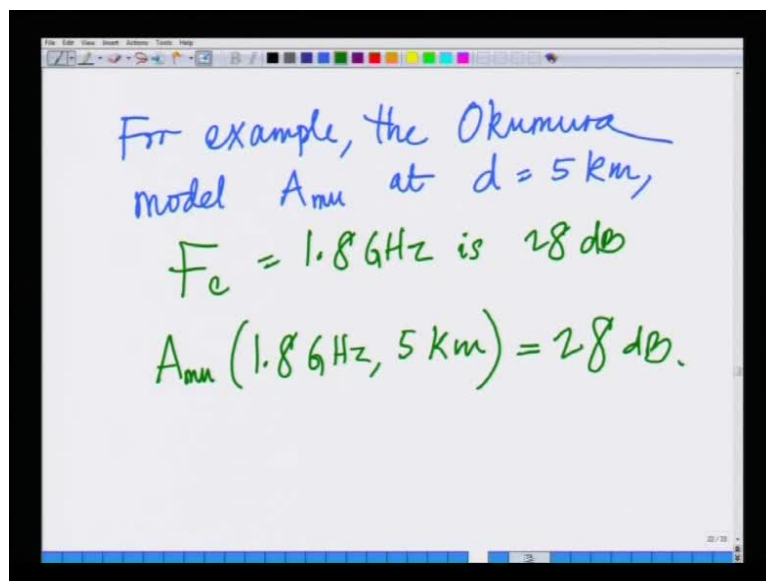 File Edit View Insert Actions Tools Help
For example, the Okumura
model Amu at d = 5 km,
Fc = 1.8 GHz is 28 dB
Amu (1.8 GHz, 5 km) = 28 dB.